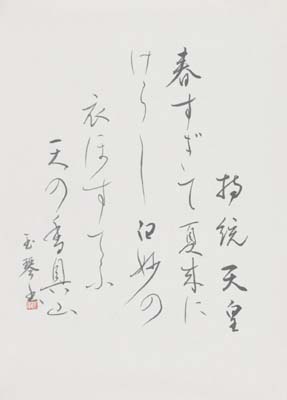 持統天皇
春すぎて夏来に
けらし白妙の
衣ほすてふ
天の香具山
玉琴書